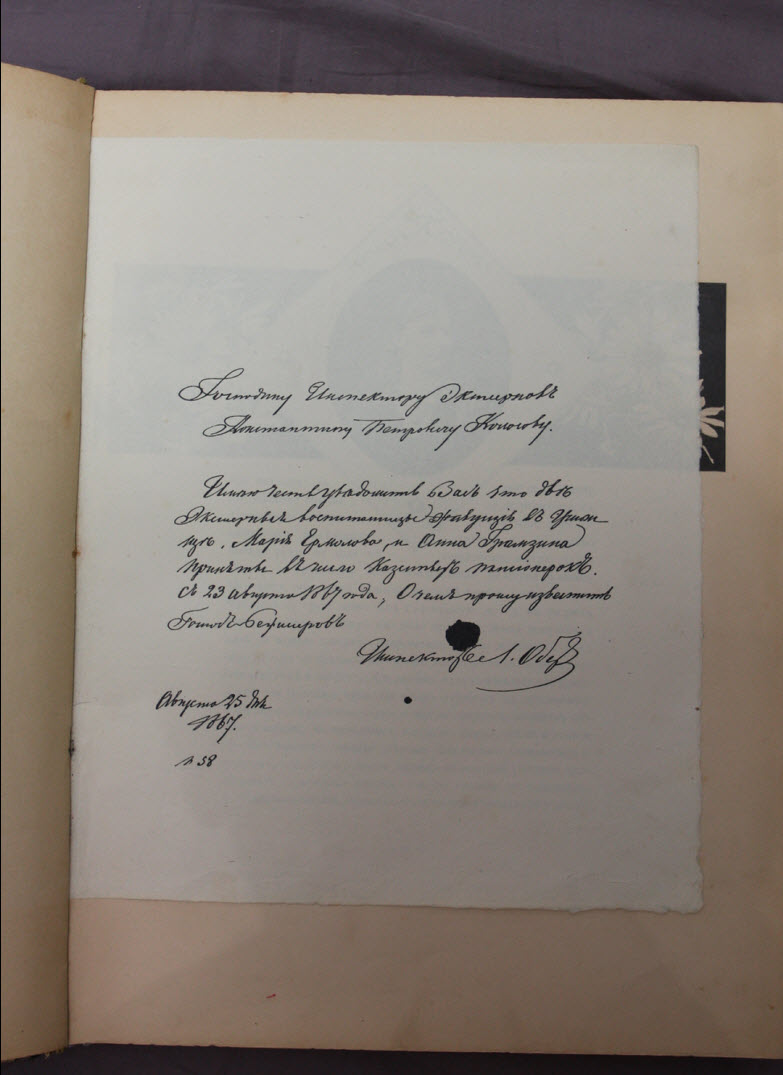 Господину Инспектору Экстерновъ
Константину Петровичу Колосову.
Имѣю честь увѣдомить Васъ что двѣ
Экстерныя воспитанницы живущія въ Учили
щѣ, Марія Ермолова, и Анна Грамзина
приняты въ число Казенныхъ пансіонерокъ.
съ 23 Августа 1867 года, О чемъ прошу извѣстить
Господъ
Инспекторъ
Августа 25 дня
1867.
N 58